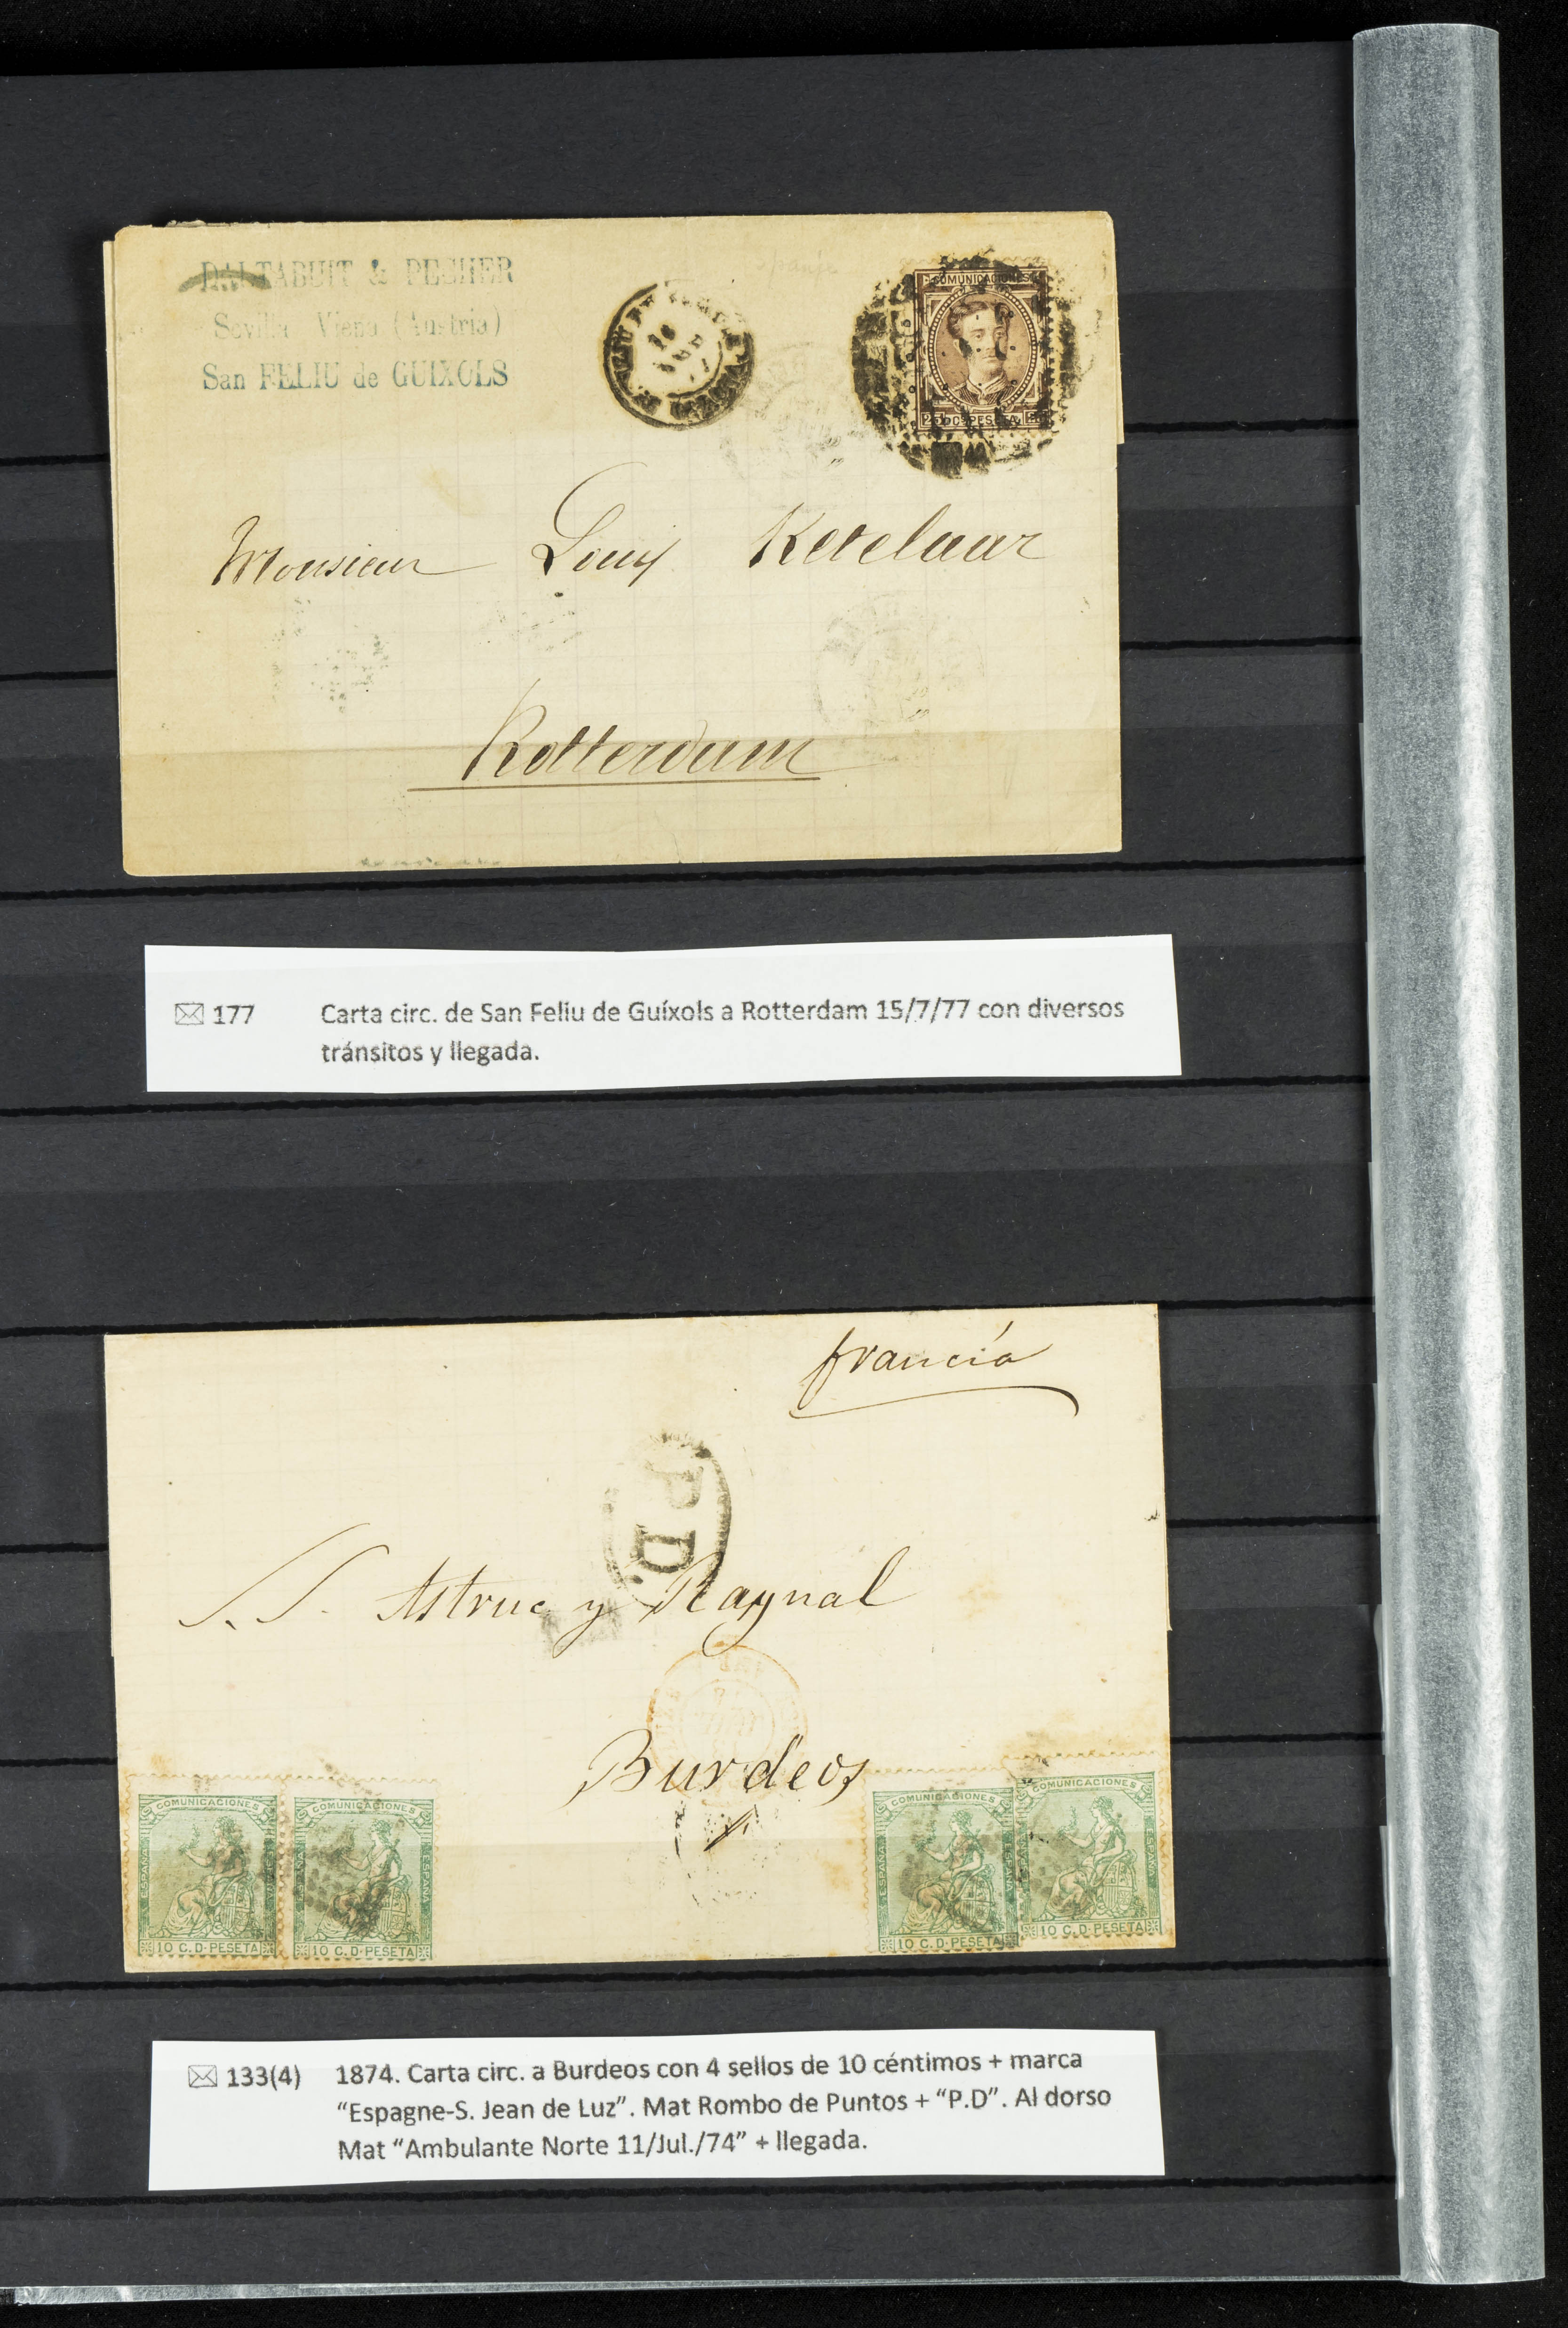 DALTABUIT & PECHER
Sevilla Viena (Austria)
San FELIU de GUIXOLS
COMUNICACIONES
25 Cs PESETA 25
Monsieur Louis Ketelaar
Rotterdam
177 Carta circ. de San Feliu de Guíxols a Rotterdam 15/7/77 con diversos
tránsitos y llegada.
francia
P.D.
S.S. Astruc y Raynal
Burdeos
COMUNICACIONES
ESPAÑA
10 C. D. PESETA
COMUNICACIONES
ESPAÑA
10 C. D. PESETA
COMUNICACIONES
ESPAÑA
10 C. D. PESETA
COMUNICACIONES
ESPAÑA
10 C. D. PESETA
133(4) 1874. Carta circ. a Burdeos con 4 sellos de 10 céntimos + marca
“Espagne-S. Jean de Luz”. Mat Rombo de Puntos + “P.D”. Al dorso
Mat “Ambulante Norte 11/Jul./74” + llegada.